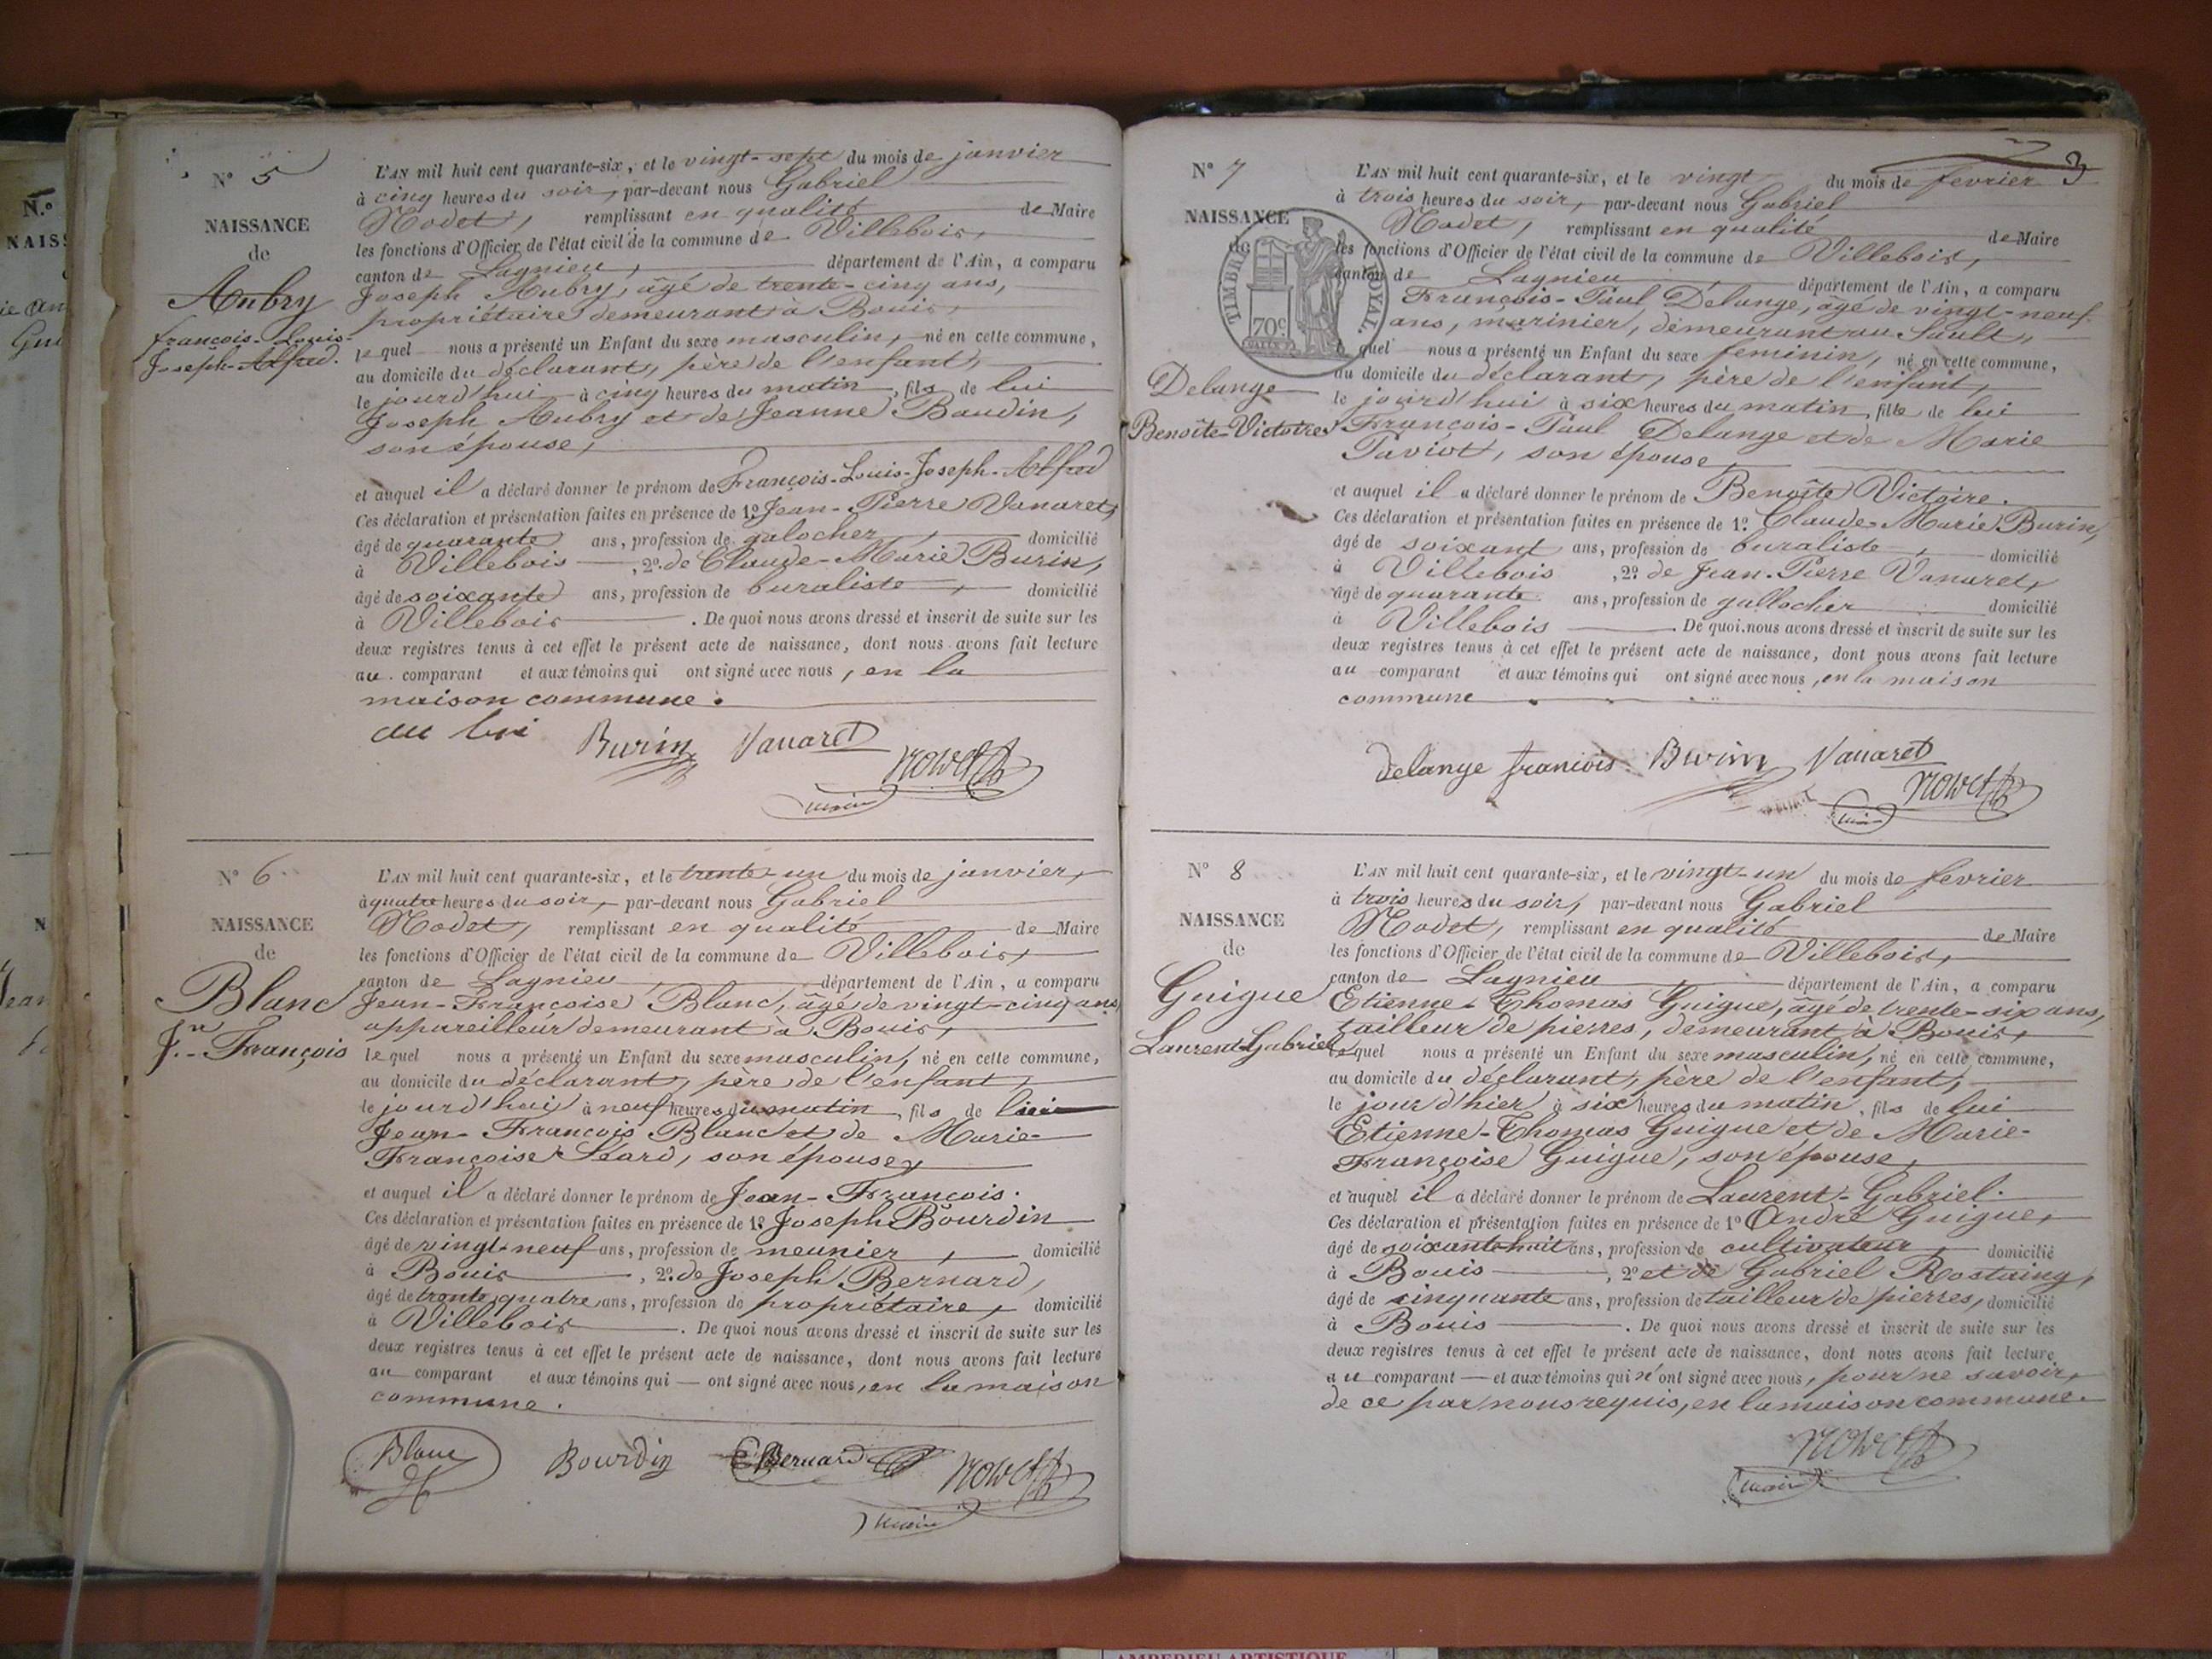 N° 5
NAISSANCE
de
Aubry
françois-Louis-
Joseph-Alfred.
L'AN mil huit cent quarante-six, et le vingt-sept du mois de janvier
à cinq heures du soir, par-devant nous Gabriel
Nodet, remplissant en qualité de Maire
les fonctions d'Officier de l'état civil de la commune de Villebois,
canton de Lagnieu, département de l'Ain, a comparu
Joseph Aubry, âgé de trente-cinq ans,
propriétaire demeurant à Bouis,
lequel nous a présenté un Enfant du sexe masculin, né en cette commune,
au domicile du déclarant, père de l'enfant,
le jourd'hui à cinq heures du matin, fils de lui
Joseph Aubry et de Jeanne Baudin,
son épouse,
et auquel il a déclaré donner le prénom de François-Louis-Joseph-Alfred
Ces déclaration et présentation faites en présence de 1º Jean-Pierre Vanaret,
âgé de quarante ans, profession de galocher, domicilié
à Villebois, 2º. de Claude-Marie Burin,
âgé de soixante ans, profession de buraliste, domicilié
à Villebois. De quoi nous avons dressé et inscrit de suite sur les
deux registres tenus à cet effet le présent acte de naissance, dont nous avons fait lecture
au comparant et aux témoins qui ont signé avec nous, en la
maison commune.
Burin Vanaret
maire
N° 6
NAISSANCE
de
Blanc
J.n François
L'AN mil huit cent quarante-six, et le trente-un du mois de janvier,
à quatre heures du soir, par-devant nous Gabriel
Nodet, remplissant en qualité de Maire
les fonctions d'Officier de l'état civil de la commune de Villebois,
canton de Lagnieu, département de l'Ain, a comparu
Jean-Françoise Blanc, âgé de vingt-cinq ans
appareilleur demeurant à Bouis,
lequel nous a présenté un Enfant du sexe masculin, né en cette commune,
au domicile du déclarant, père de l'enfant,
le jourd'hui à neuf heures du matin, fils de lui
Jean-François Blanc et de Marie-
Françoise Séard, son épouse,
et auquel il a déclaré donner le prénom de Jean-François.
Ces déclaration et présentation faites en présence de 1º Joseph Bourdin
âgé de vingt-neuf ans, profession de meunier, domicilié
à Bouis, 2º. de Joseph Bernard,
âgé de trente quatre ans, profession de propriétaire, domicilié
à Villebois. De quoi nous avons dressé et inscrit de suite sur les
deux registres tenus à cet effet le présent acte de naissance, dont nous avons fait lecture
au comparant et aux témoins qui ont signé avec nous, en la maison
commune.
Blanc Bourdin Bernard
maire
3
N° 7
NAISSANCE
de
TIMBRE ROYAL.
70c.
Delange
Benoîte-Victoire
L'AN mil huit cent quarante-six, et le vingt du mois de fevrier
à trois heures du soir, par-devant nous Gabriel
Nodet, remplissant en qualité de Maire
les fonctions d'Officier de l'état civil de la commune de Villebois,
canton de Lagnieu, département de l'Ain, a comparu
François-Paul Delange, âgé de vingt-neuf
ans, marinier, demeurant au Sault,
lequel nous a présenté un Enfant du sexe feminin, né en cette commune,
au domicile du déclarant, père de l'enfant,
le jourd'hui à six heures du matin, fille de lui
François-Paul Delange et de Marie
Paviot, son épouse,
et auquel il a déclaré donner le prénom de Benoîte Victoire.
Ces déclaration et présentation faites en présence de 1º. Claude-Marie Burin,
âgé de soixant ans, profession de buraliste, domicilié
à Villebois, 2º. de Jean-Pierre Vanaret,
âgé de quarante ans, profession de gallocher domicilié
à Villebois. De quoi nous avons dressé et inscrit de suite sur les
deux registres tenus à cet effet le présent acte de naissance, dont nous avons fait lecture
au comparant et aux témoins qui ont signé avec nous, en la maison
commune
Delange francois Burin Vanaret
maire
N° 8
NAISSANCE
de
Guigue
Laurent-Gabriel
L'AN mil huit cent quarante-six, et le vingt-un du mois de fevrier
à trois heures du soir, par-devant nous Gabriel
Nodet, remplissant en qualité de Maire
les fonctions d'Officier de l'état civil de la commune de Villebois,
canton de Lagnieu, département de l'Ain, a comparu
Etienne-Thomas Guigue, âgé de trente-six ans,
tailleur de pierres, demeurant à Bouis,
lequel nous a présenté un Enfant du sexe masculin, né en cette commune,
au domicile du déclarant, père de l'enfant,
le jour d'hier à six heures du matin, fils de lui
Etienne-Thomas Guigue et de Marie-
Françoise Guigue, son épouse,
et auquel il a déclaré donner le prénom de Laurent-Gabriel.
Ces déclaration et présentation faites en présence de 1º André Guigue,
âgé de soixante-huit ans, profession de cultivateur, domicilié
à Bouis, 2º et de Gabriel Rostaing,
âgé de cinquante ans, profession de tailleur de pierres, domicilié
à Bouis. De quoi nous avons dressé et inscrit de suite sur les
deux registres tenus à cet effet le présent acte de naissance, dont nous avons fait lecture
au comparant et aux témoins qui n'ont signé avec nous, pour ne savoir,
de ce par nous requis, en la maison commune.
maire